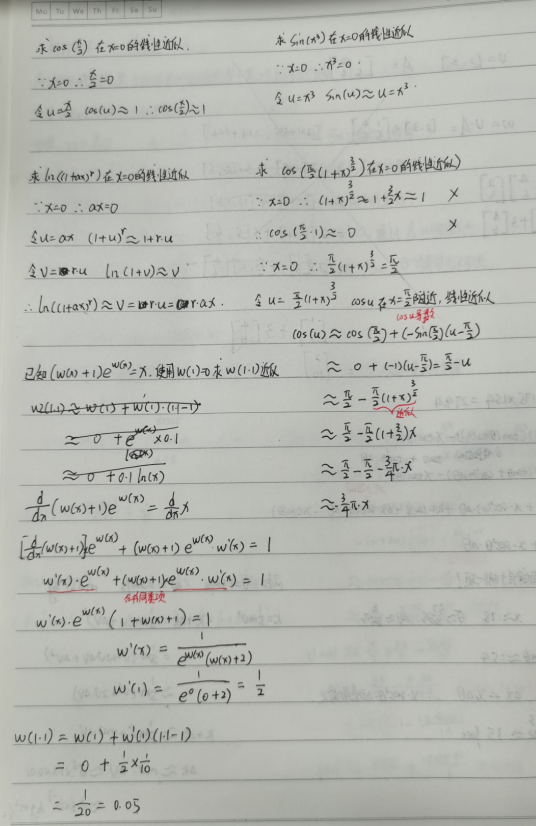 Mo Tu We Th Fr Sa Su
求 cos(x/2) 在x=0的线性近似.
∵x=0 ∴x/2=0
令u=x/2 cos(u)≈1 ∴cos(x/2)≈1
求 sin(x³) 在x=0的线性近似
∵x=0 ∴x³=0.
令u=x³ sin(u)≈u=x³.
求 ln((1+ax)^r) 在x=0的线性近似
∵x=0 ∴ax=0
令u=ax (1+u)^r≈1+r·u
令v=r·u ln(1+v)≈v
∴ln((1+ax)^r)≈v=r·u=r·ax.
求 cos(π/2(1+x)^(3/2)) 在x=0的线性近似)
∵x=0 ∴(1+x)^(3/2)≈1+3/2x≈1 ×
∴cos(π/2·1)≈0 ×
∵x=0 ∴π/2(1+x)^(3/2)=π/2
令u=π/2(1+x)^(3/2) cosu在x=π/2附近,线性近似
cosu导数
cos(u)≈cos(π/2)+(-sin(π/2)(u-π/2)
≈0+(-1)(u-π/2)=π/2-u
≈π/2-π/2(1+x)^(3/2)
近似
≈π/2-π/2(1+3/2)x
≈π/2-π/2-3/4π·x
≈-3/4π·x
已知 (w(x)+1)e^w(x)=x,使用w(1)=0求w(1.1)近似
w(1.1)≈w(1)+w'(1)·(1.1-1)
≈0+e^w(x)×0.1
≈0+0.1ln(x)
d/dx(w(x)+1)e^w(x)=d/dx x
[d/dx(w(x)+1)]e^w(x)+(w(x)+1)e^w(x)·w'(x)=1
w'(x)·e^w(x)+(w(x)+1)e^w(x)·w'(x)=1
合并同类项
w'(x)·e^w(x)(1+w(x)+1)=1
w'(x)=1/(e^w(x)(w(x)+2))
w'(1)=1/(e⁰(0+2))=1/2
w(1.1)=w(1)+w'(1)(1.1-1)
=0+1/2×1/10
=1/20=0.05